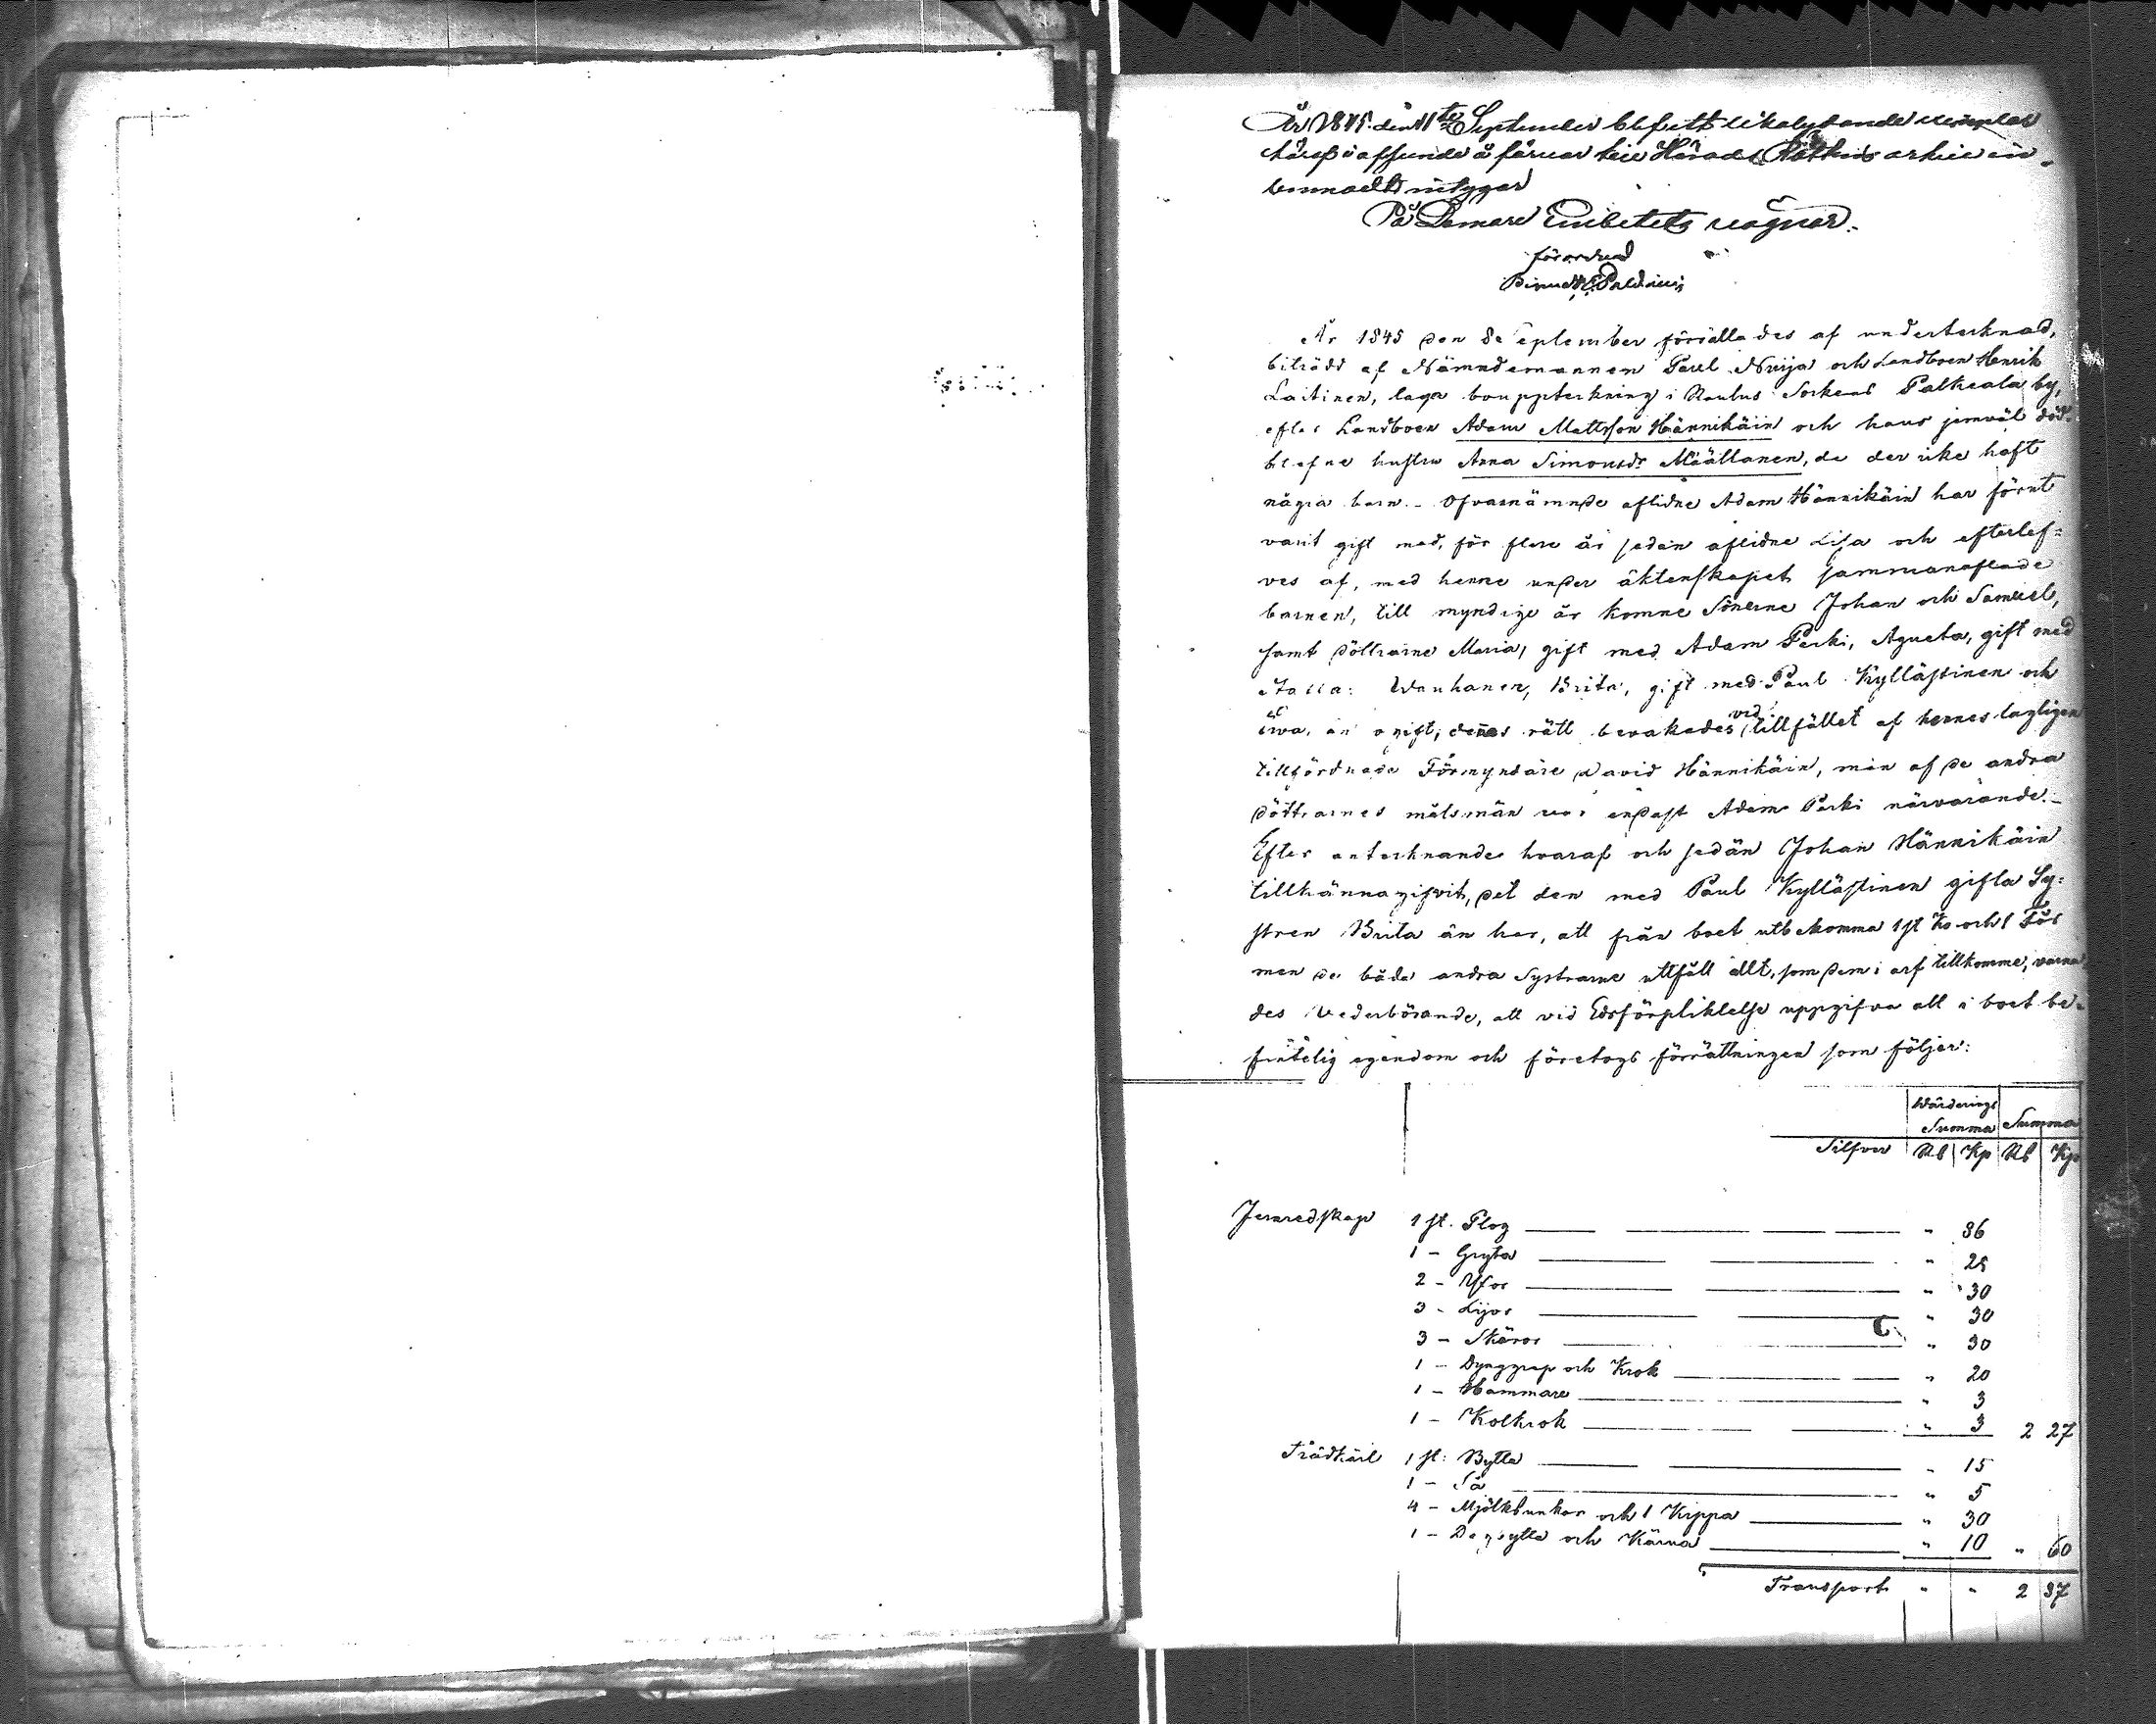 År 1845 den 11te September blef ett likalydande exemplar
häraf i afseende å förvar till Härads Rättens arkiv in-
lemnadt intygar
På Domare Embetets vägnar.
förordnad
År 1845 den 8 September förrättades af undertecknad,
biträdd af Nämndemannen Paul Nuija och Landboen Henrik
Laitinen, laga bouppteckning i Raulus Sockens Palkeala by,
efter Landboen Adam Mattsson Hännikäin och hans jemväl död-
blefne hustru Anna Simonsdr Määttänen, de der icke haft
några barn. - Ofvannämnde aflidne Adam Hännikäin har förut
varit gift med, för flere år sedan aflidne Lisa och efterlef-
ves af, med henne under äktenskapet sammanaflade
barnen, till myndige år komne Sönerne Johan och Samuel,
samt döttrarne Maria, gift med Adam Perki, Agneta, gift med
Wanhanen, Brita, gift med Paul Kyllästinen och
Ewa, än ogift, dennas rätt bevakades vid tillfället af hennes lagligen
tillförordnade Förmyndare David Hännikäin, men af de andra
döttrarnes målsmän var endast Adam Perki närvarande. -
Efter antecknande hvaraf och sedan Johan Hännikäin
tillkännagifvit, det den med Paul Kyllästinen gifta Sy-
stren Brita än har, att från boet utbekomma 1 st Ko och 1 Får
men de båda andra Systrarne utfått allt, som dem i arf tillkomme, varna-
des Vederbörande, att vid Edsförpliktelse uppgifva all i boet be-
fintelig egendom och företogs förrättningen som följer:
Wärderings
Summa Summa
Silfver Rb Kp Rb Kp
Jernredskap 1 st. Plog " 86
1 - Gryta " 25
2 - Yxor " 30
3 - Lijor " 30
3 - Skäror " 30
1 - Dynggrep och Krok " 20
1 - Hammare " 3
1 - Kolkrok " 3 2 27
Trädkäril 1 st: Bytta " 15
1 - Så " 5
4 - Mjölkbunkar och 1 Kippa " 30
1 - och Kärna " 10 " 60
Transport " " 2 87